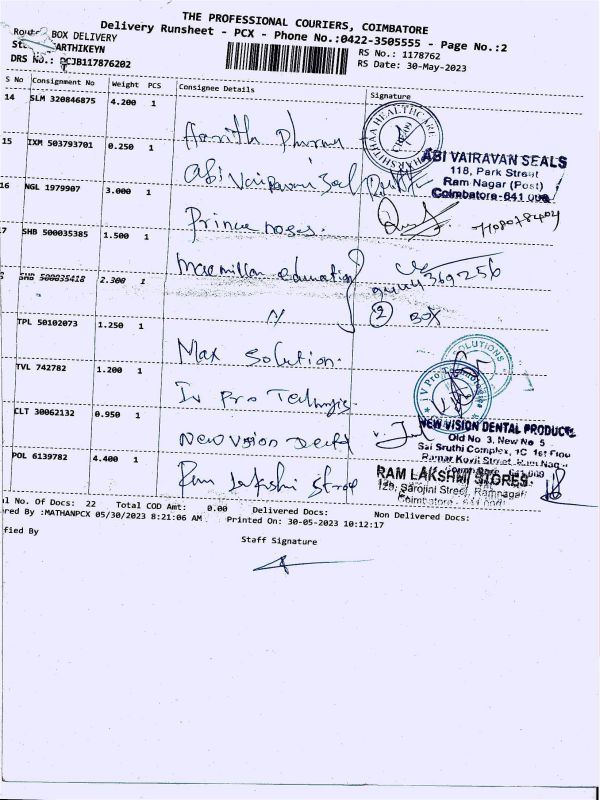 THE PROFESSIONAL COURIERS, COIMBATORE
Delivery Runsheet - PCX - Phone No.:0422-3505555 - Page No.:2
BOX DELIVERY
RS No.: 1178762
ARTHIKEYN
RS Date: 30-May-2023
DRS No.: PCJB117876202
S No Consignment No Weight PCS Consignee Details Signature
14 SLM 320846875 4.200 1 Harith Pharmy
HEALTHCARE
15 IXM 503793701 0.250 1 Abi Vairavan Seal
ABI VAIRAVAN SEALS
118, Park Street
Ram Nagar (Post)
Coimbatore-641 009
16 NGL 1979907 3.000 1 Prince roses.
7 SHB 500035385 1.500 1 Macmillan education
9444369256
SHB 500035418 2.300 1 〃
2 BOX
TPL 50102073 1.250 1 Max Solution.
SOLUTIONS
TVL 742782 1.200 1 IV Pro Technogis
iV Pro Technologies
CLT 30062132 0.950 1 New Vision Dental
NEW VISION DENTAL PRODUCTS
Old No 3, New No 5
Sai Sruthi Complex, 1C 1st Floor
Ramar Kovil Street, Ram Nagar
POL 6139782 4.400 1 Ram Lakshmi Store
RAM LAKSHMI STORES
129, Sarojini Street, Ramnagar
Coimbatore - 641 009
l No. Of Docs: 22 Total COD Amt: 0.00 Delivered Docs: Non Delivered Docs:
red By :MATHANPCX 05/30/2023 8:21:06 AM Printed On: 30-05-2023 10:12:17
fied By
Staff Signature